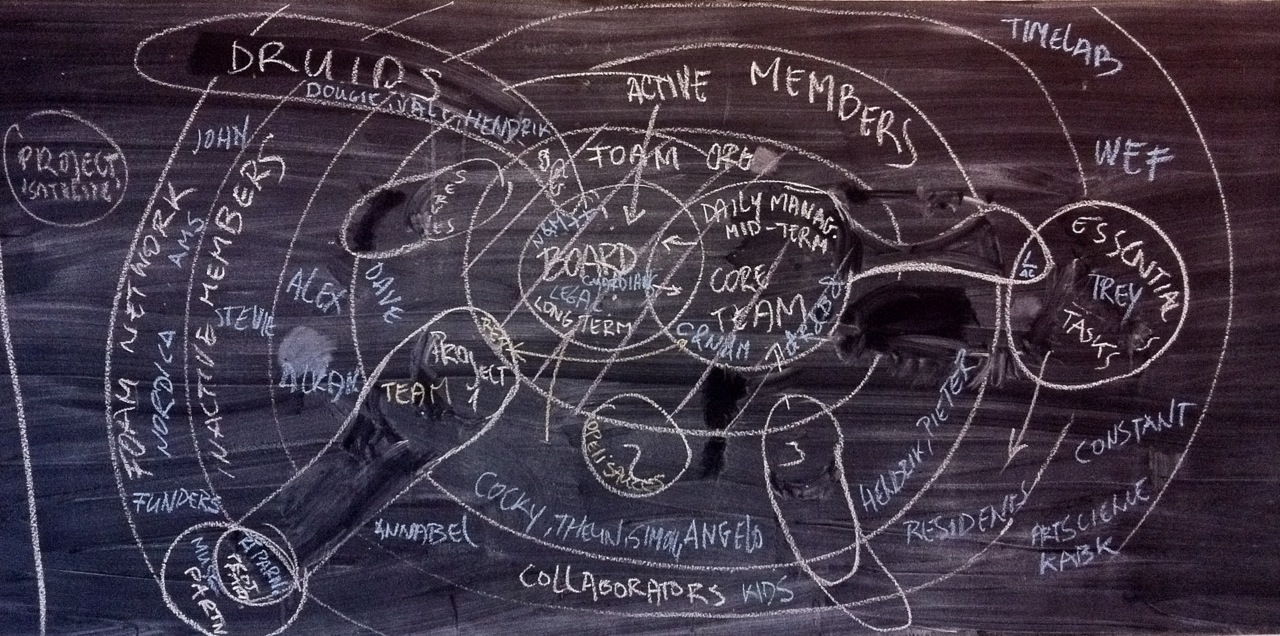 TIMELAB
DRUIDS
DOUGIE, VALI, HENDRIK
ACTIVE MEMBERS
JOHN
WEF
PROJECT
'SATELLITE'
FOAM ORG
FOAM NETWORK
AMS
NORDICA
INACTIVE MEMBERS
STEVIE
ALEX
DAVE
ALKAN
BOARD
GUARDIANS
LEGAL
LONG TERM
DAILY MANAG.
MID-TERM
CORE
TEAM
ESSENTIAL
TREY
TASKS
PROJECT
TEAM 1
2
3
HENDRIK, PIETER
CONSTANT
FUNDERS
COCKY, THEUN, SIMON, ANGELO
ANNABEL
RESIDENTS
ARTSCIENCE
KABK
COLLABORATORS KIDS